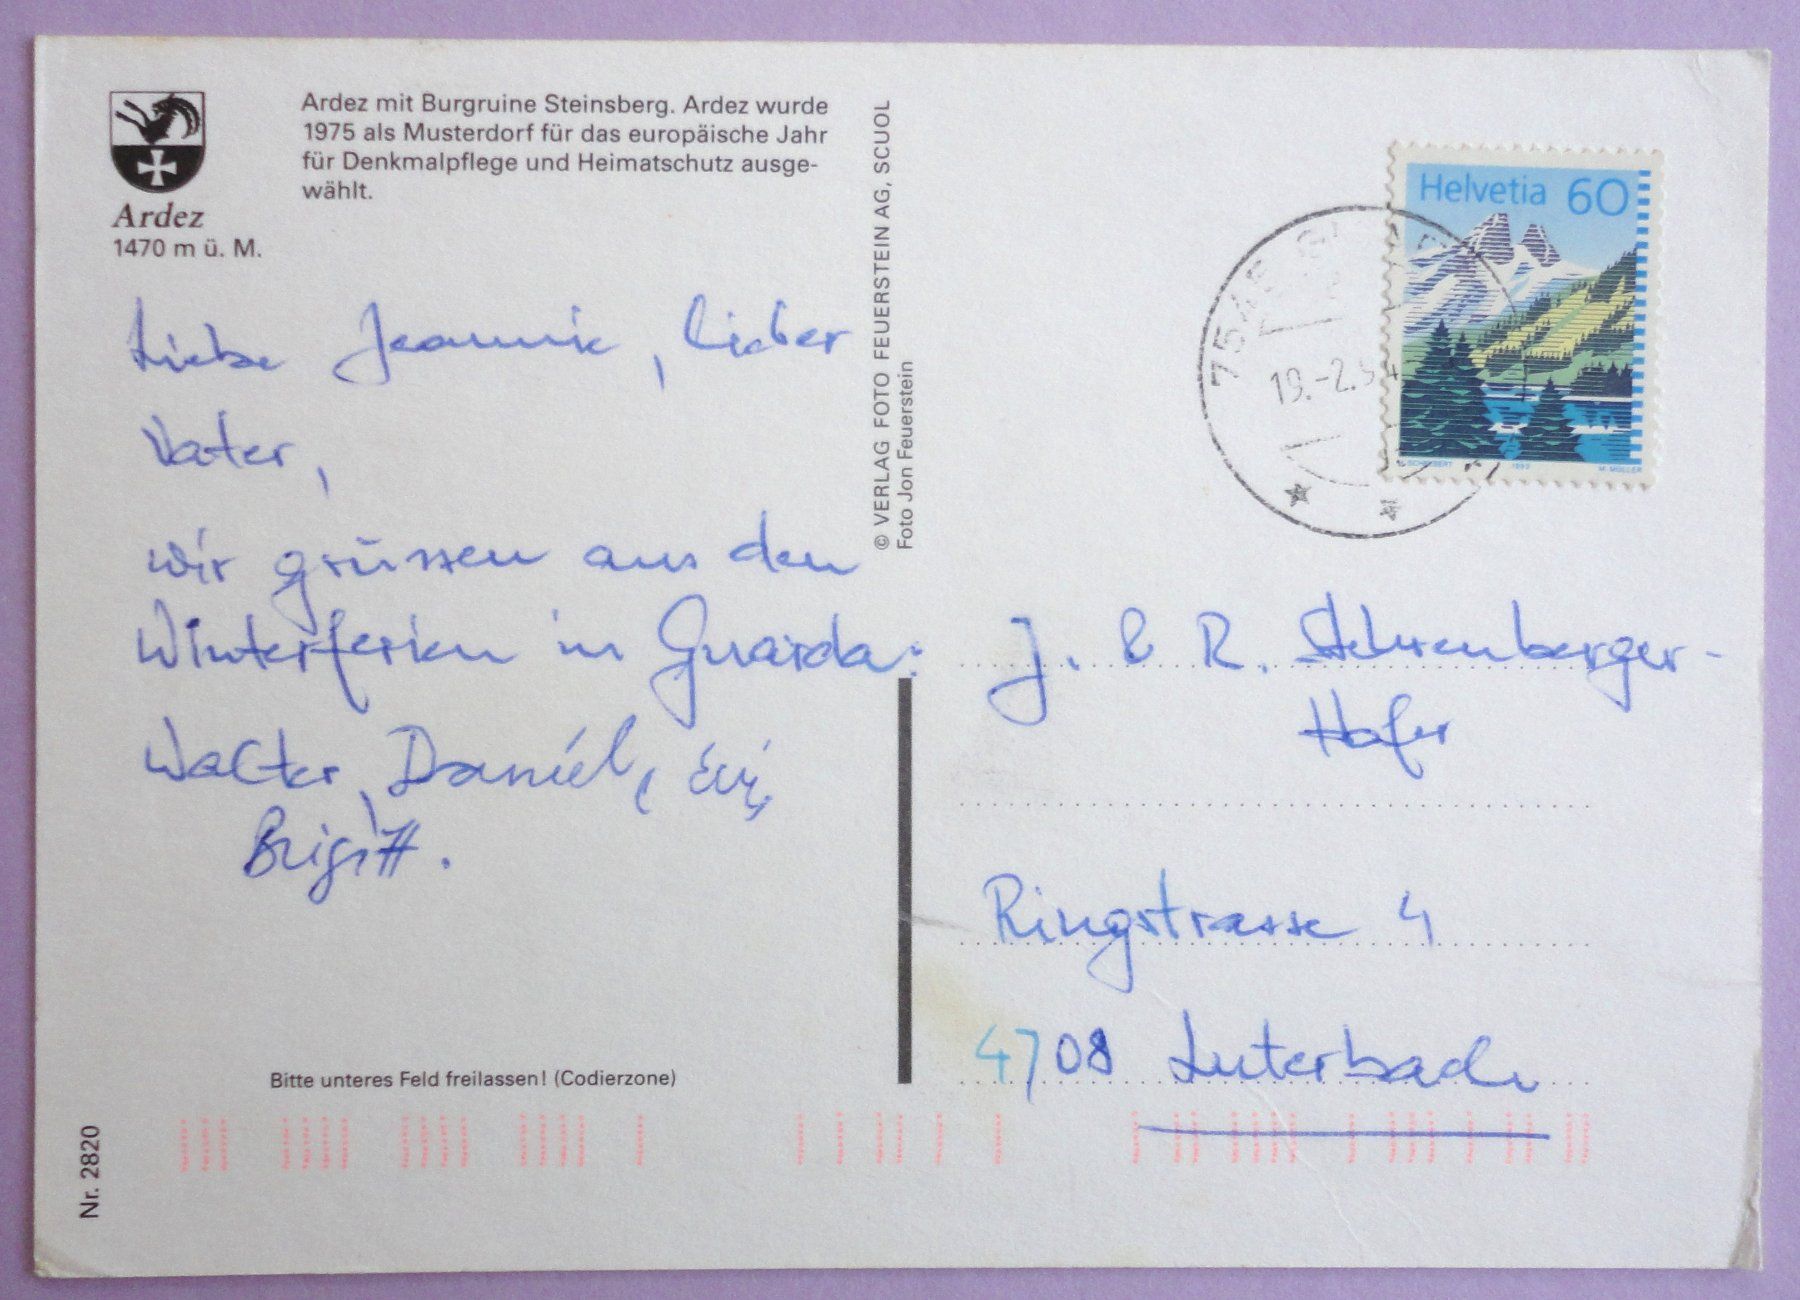 Ardez
1470 m ü. M.
Ardez mit Burgruine Steinsberg. Ardez wurde
1975 als Musterdorf für das europäische Jahr
für Denkmalpflege und Heimatschutz ausge-
wählt.
Liebe Jeannie, lieber
Vater,
wir grüssen aus den
Winterferien in Guarda:
Walter, Daniel, Evi,
Brigitt.
Bitte unteres Feld freilassen! (Codierzone)
Nr. 2820
© VERLAG FOTO FEUERSTEIN AG, SCUOL
Foto Jon Feuerstein
Helvetia 60
1993
M. MÜLLER
7545
19.-2.94
J. & R.
Hofer
Ringstrasse 4
4708 Luterbach